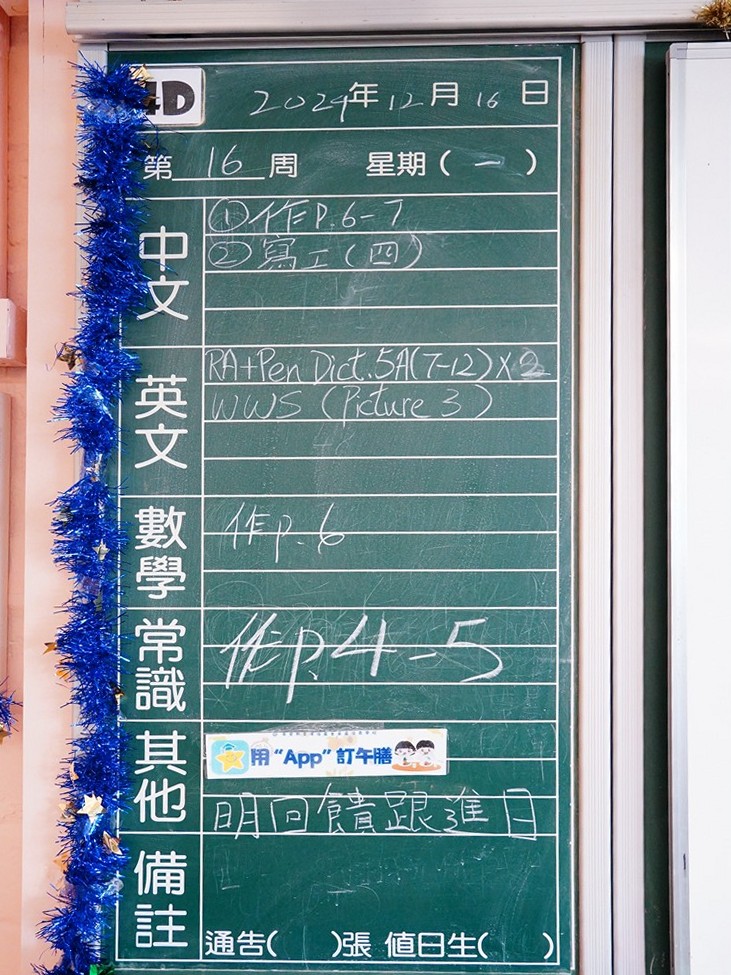 4D
2024年12月16日
第16周 星期(一)
中文
①作P.6-7
②寫工(四)
英文
RA+Pen Dict.5A(7-12)X2
WWS (Picture 3)
數學
作p.6
常識
作p.4-5
其他
用“App”訂午膳
明回饋跟進日
備註
通告( )張 值日生( )